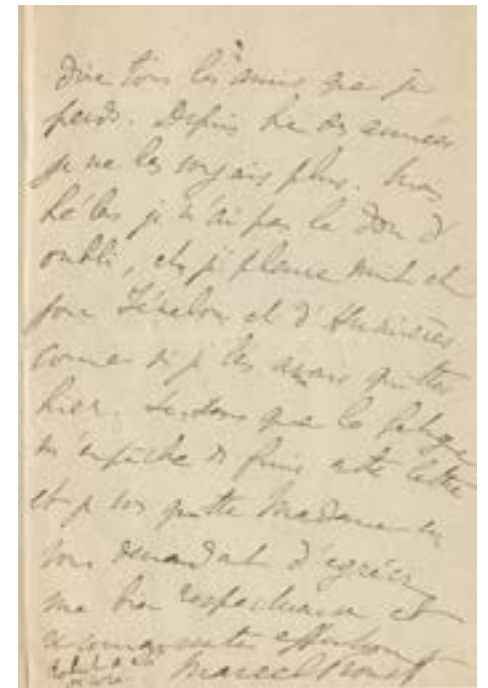 dire tous les amis que je
perds. Depuis des années
je ne les voyais plus. Mais
hélas je n'ai pas le don d'
oubli, et je pleure nuit et
jour Fénelon et d'Humières
comme si je les avais quittés
hier. que la fatigue
m'empêche de finir cette lettre
et je vous quitte Madame en
vous demandant d'agréer
ma bien respectueuse et
reconnaissante affection
Marcel Proust